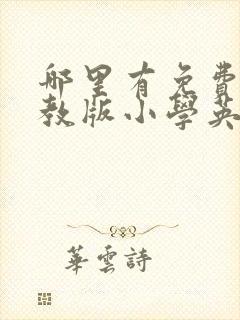 哪里有免費
教版小學英
華雲詩